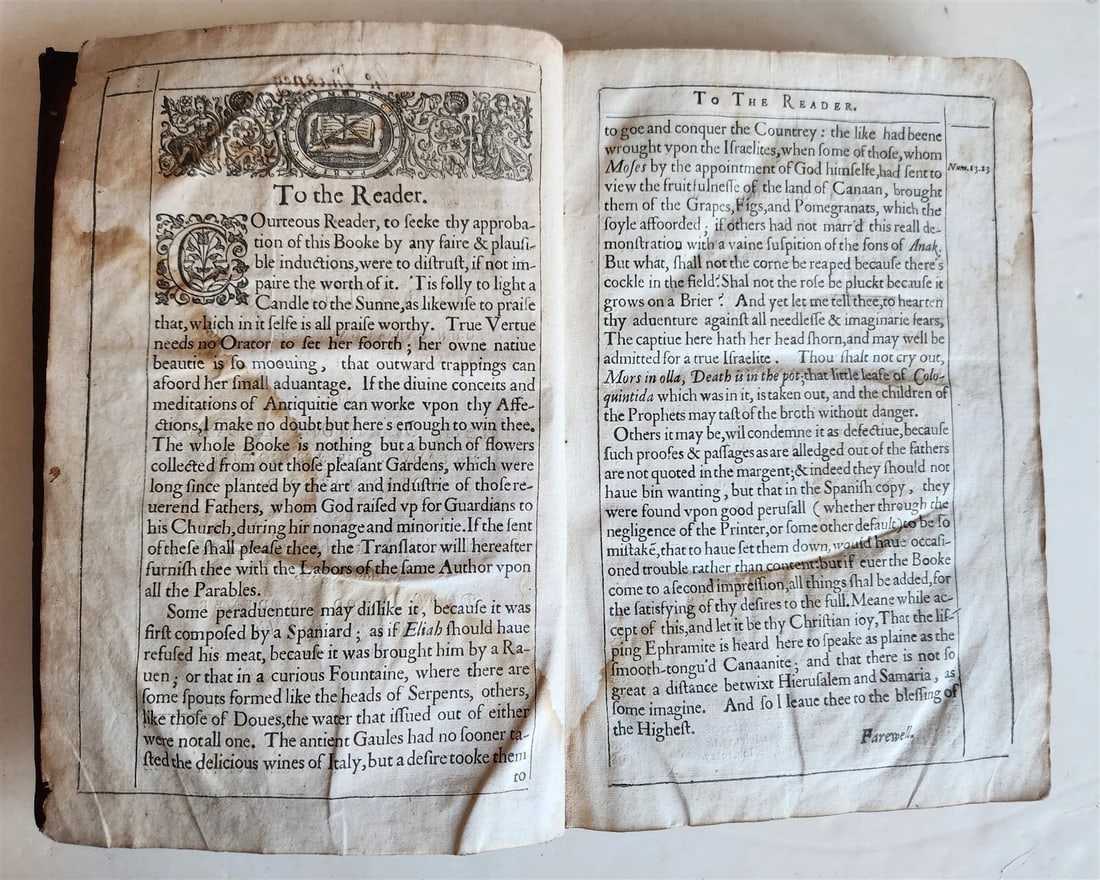 To the Reader.
COurteous Reader, to ſeeke thy approba-
tion of this Booke by any faire & plauſi-
ble inductions,were to diſtruſt, if not im-
paire the worth of it. 'Tis folly to light a
Candle to the Sunne,as likewiſe to praiſe
that,which in it ſelfe is all praiſe worthy. True Vertue
needs no Orator to ſet her foorth ; her owne natiue
beautie is ſo moouing, that outward trappings can
afoord her ſmall aduantage. If the diuine conceits and
meditations of Antiquitie can worke vpon thy Affe-
ctions,I make no doubt but here s enough to win thee.
The whole Booke is nothing but a bunch of flowers
collected from out thoſe pleaſant Gardens, which were
long ſince planted by the art and induſtrie of thoſe re-
uerend Fathers, whom God raiſed vp for Guardians to
his Church,during hir nonage and minoritie.If the ſent
of theſe ſhall pleaſe thee, the Tranſlator will hereafter
furniſh thee with the Labors of the ſame Author vpon
all the Parables.
Some peraduenture may diſlike it, becauſe it was
firſt compoſed by a Spaniard ; as if Eliah ſhould haue
refuſed his meat, becauſe it was brought him by a Ra-
uen ; or that in a curious Fountaine, where there are
ſome ſpouts formed like the heads of Serpents, others,
like thoſe of Doues,the water that iſſued out of either
were not all one. The antient Gaules had no ſooner ta-
ſted the delicious wines of Italy,but a deſire tooke them
to
To The Reader.
to goe and conquer the Countrey : the like had beene
wrought vpon the Iſraelites,when ſome of thoſe,whom
Moſes by the appointment of God himſelfe,had ſent to
Num.13.23
view the fruitfulneſſe of the land of Canaan, brought
them of the Grapes,Figs,and Pomegranats, which the
ſoyle affoorded ; if others had not marr'd this reall de-
monſtration with a vaine ſuſpition of the ſons of Anak.
But what, ſhall not the corne be reaped becauſe there's
cockle in the field? Shal not the roſe be pluckt becauſe it
grows on a Brier ? And yet let me tell thee,to hearten
thy aduenture againſt all needleſſe & imaginarie fears,
The captiue here hath her head ſhorn,and may well be
admitted for a true Iſraelite . Thou ſhalt not cry out,
Mors in olla, Death is in the pot;that little leafe of Colo-
quintida which was in it, is taken out, and the children of
the Prophets may taſt of the broth without danger.
Others it may be,wil condemne it as defectiue,becauſe
ſuch proofes & paſſages as are alledged out of the fathers
are not quoted in the margent;& indeed they ſhould not
haue bin wanting , but that in the Spaniſh copy , they
were found vpon good peruſall ( whether through the
negligence of the Printer,or ſome other default)to be ſo
miſtakē,that to haue ſet them down,would haue occaſi-
oned trouble rather than content:but if euer the Booke
come to a ſecond impreſſion,all things ſhal be added,for
the ſatisfying of thy deſires to the full.Meane while ac-
cept of this,and let it be thy Chriſtian ioy,That the liſ-
ping Ephramite is heard here to ſpeake as plaine as the
ſmooth-tongu'd Canaanite; and that there is not ſo
great a diſtance betwixt Hieruſalem and Samaria, as
ſome imagine. And ſo I leaue thee to the bleſſing of
the Higheſt.
Farewell.